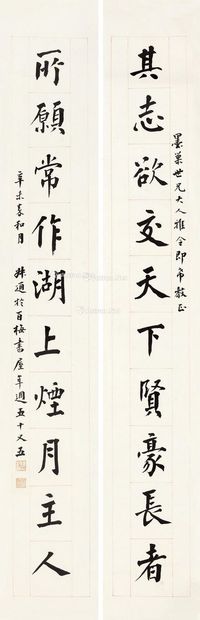 其志欲交天下賢豪長者
墨巢世兄大人雅令即希教正
所願常作湖上煙月主人
辛未春和月
通於百梅書屋年週五十又五